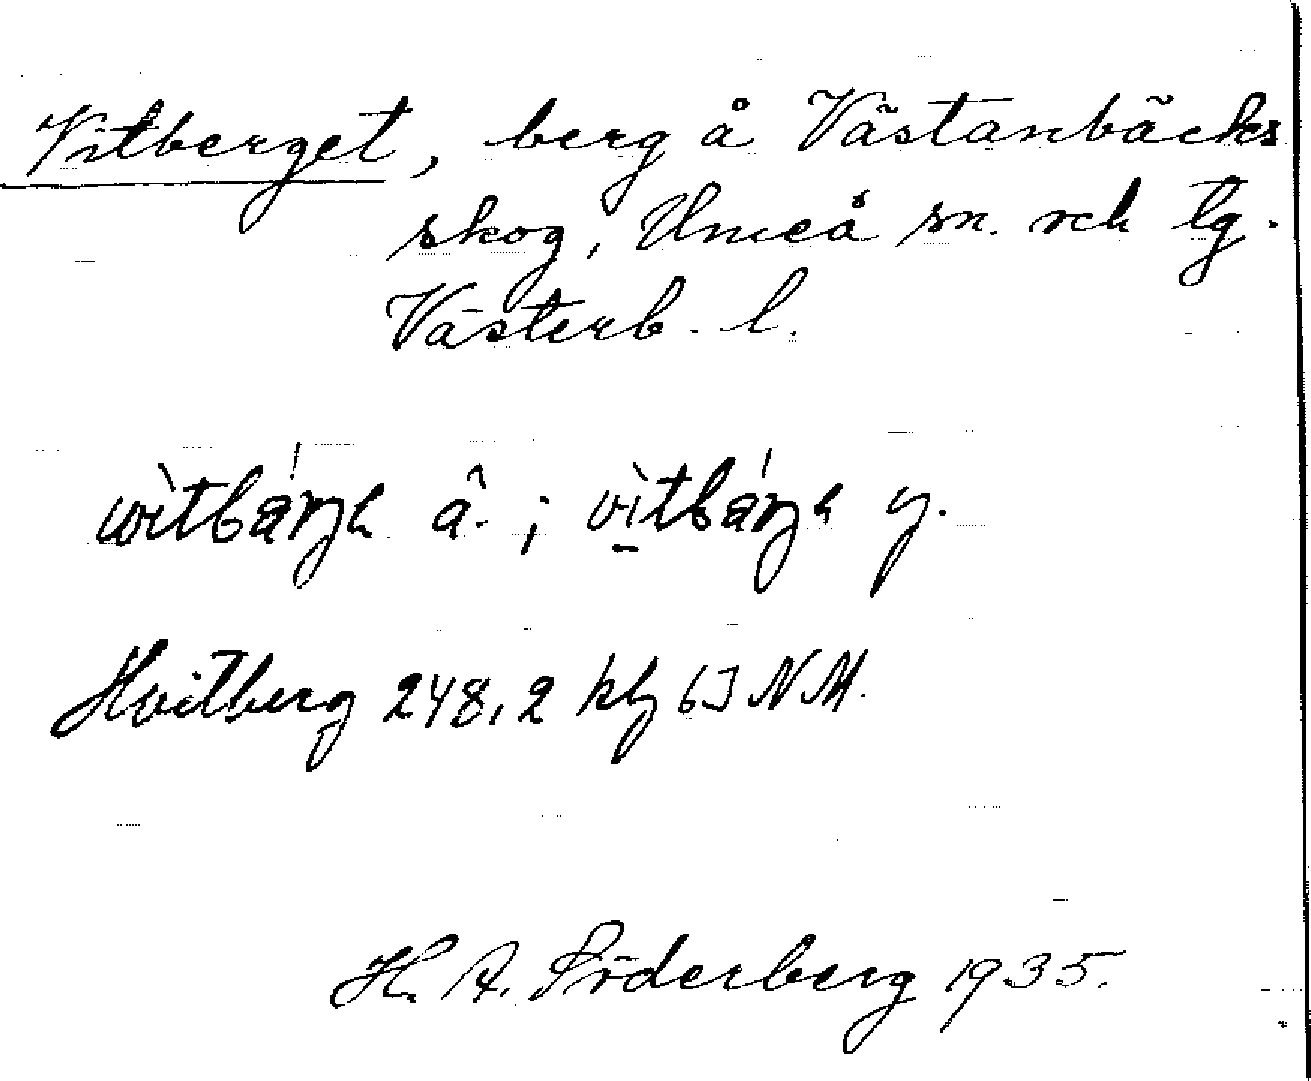 Vitberget, berg å Västanbäcks
skog, Umeå sn. och tg.
Västerb. l.
å. ; y.
Hvitberg 248,2 kbl 63 NM.
H. A. Söderberg 1935.